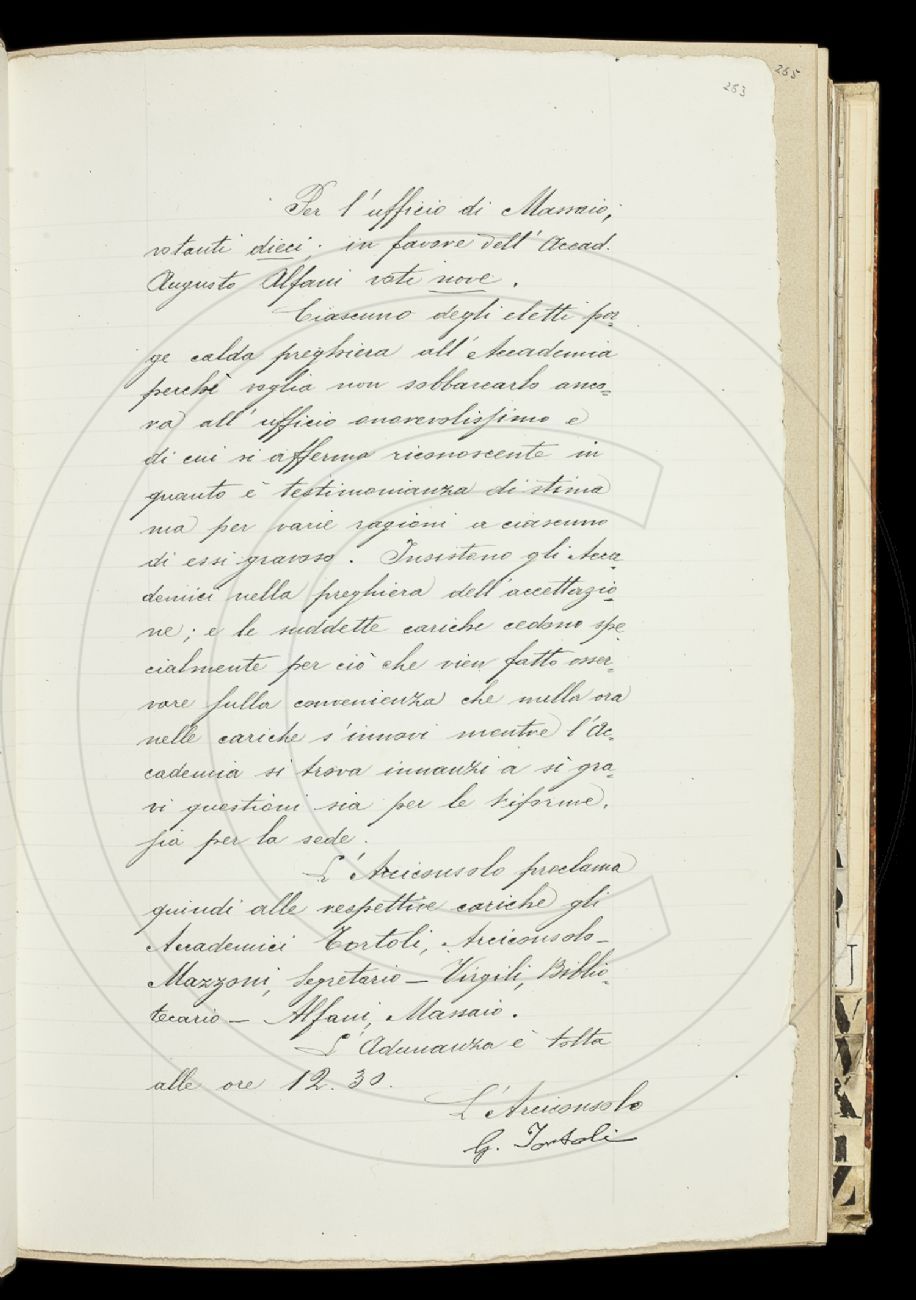 265
263
Per l'ufficio di Massaio;
votanti dieci; in favore dell'Accad.
Augusto Alfani voti nove.
Ciascuno degli eletti por=
ge calda preghiera all'Accademia
perchè voglia non sobbarcarlo anco=
ra all'ufficio onorevolissimo e
di cui si afferma riconoscente in
quanto è testimonianza di stima
ma per varie ragioni a ciascuno
di essi gravoso. Insistono gli Acca=
demici nella preghiera dell'accettazio=
ne; e le suddette cariche cedono spe
cialmente per ciò che vien fatto osser=
vare sulla convenienza che nulla ora
nelle cariche s'innovi mentre l'Ac=
cademia si trova innanzi a sì gra=
vi questioni sia per le riforme,
sia per la sede.
L'Arciconsolo proclama
quindi alle respettive cariche gli
Accademici Tortoli, Arciconsolo -
Mazzoni, Segretario - Virgili, Biblio=
tecario - Alfani, Massaio.
L'Adunanza è tolta
alle ore 12.30.
L'Arciconsolo
G. Tortoli